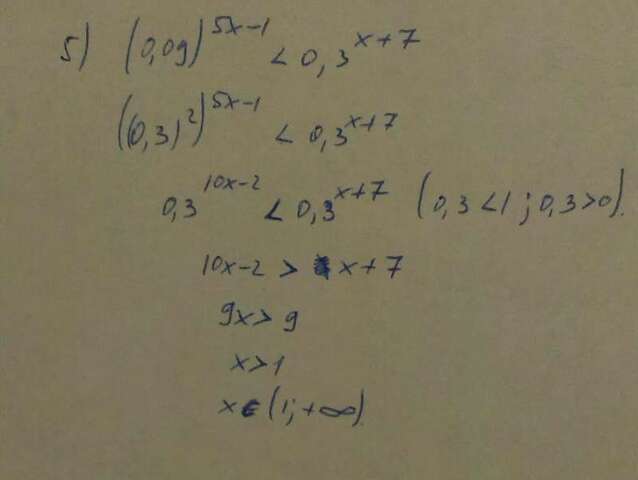 5) (0,09)^{5x-1} < 0,3^{x+7}
((0,3)^2)^{5x-1} < 0,3^{x+7}
0,3^{10x-2} < 0,3^{x+7} (0,3<1; 0,3>0).
10x-2 > x+7
9x > 9
x>1
x∈(1;+∞)